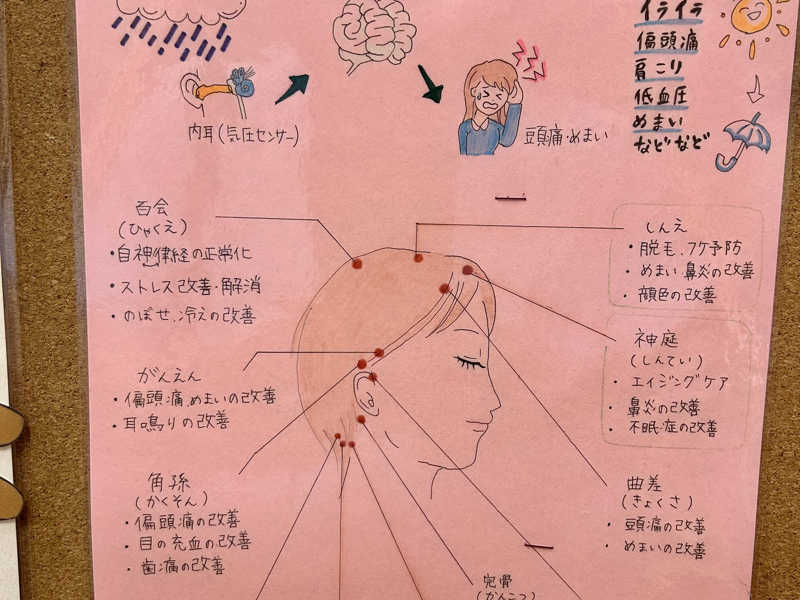 イライラ
偏頭痛
肩こり
低血圧
めまい
などなど
内耳(気圧センサー)
頭痛・めまい
百会
(ひゃくえ)
・自神律経の正常化
・ストレス改善・解消
・のぼせ、冷えの改善
しんえ
・脱毛、フケ予防
・めまい 鼻炎の改善
・顔色の改善
がんえん
・偏頭痛、めまいの改善
・耳鳴りの改善
神庭
(しんてい)
・エイジングケア
・鼻炎の改善
・不眠症の改善
角孫
(かくそん)
・偏頭痛の改善
・目の充血の改善
・歯痛の改善
曲差
(きょくさ)
・頭痛の改善
・めまいの改善
完骨
(かんこつ)